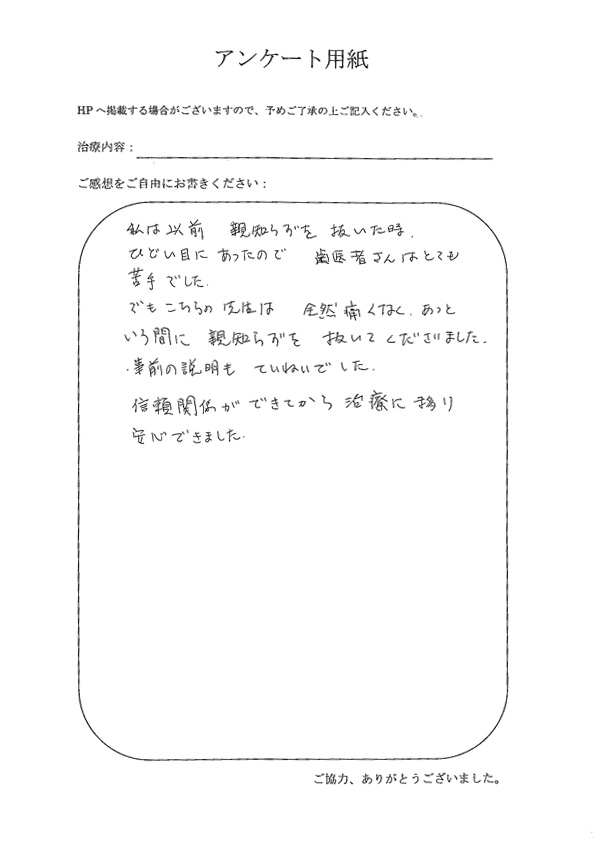 アンケート用紙
HPへ掲載する場合がございますので、予めご了承の上ご記入ください。
治療内容：
ご感想をご自由にお書きください：
私は以前 親知らずを 抜いた時、
ひどい目に あったので 歯医者さんはとても
苦手でした。
でもこちらの先生は 全然痛くなく、あっと
いう間に 親知らずを 抜いてくださいました。
事前の説明も ていねいでした。
信頼関係ができてから 治療に移り
安心できました。
ご協力、ありがとうございました。